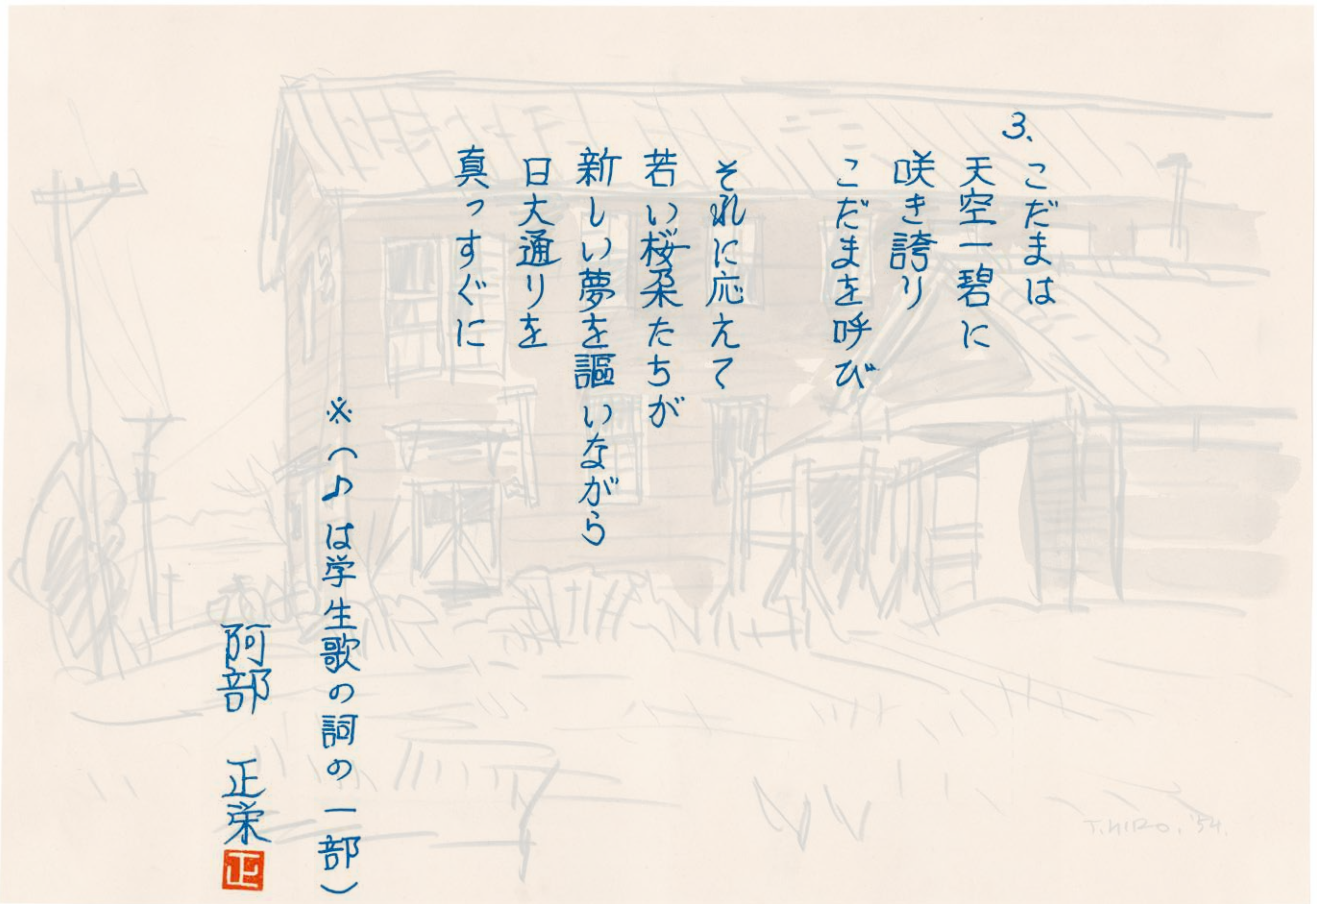 3.
こだまは
天空一碧に
咲き誇り
こだまを呼び
それに応えて
若い桜朶たちが
新しい夢を謳いながら
日大通りを
真っすぐに
※(♪は学生歌の詞の一部)
阿部 正栄
正
T.HIRO.'54.